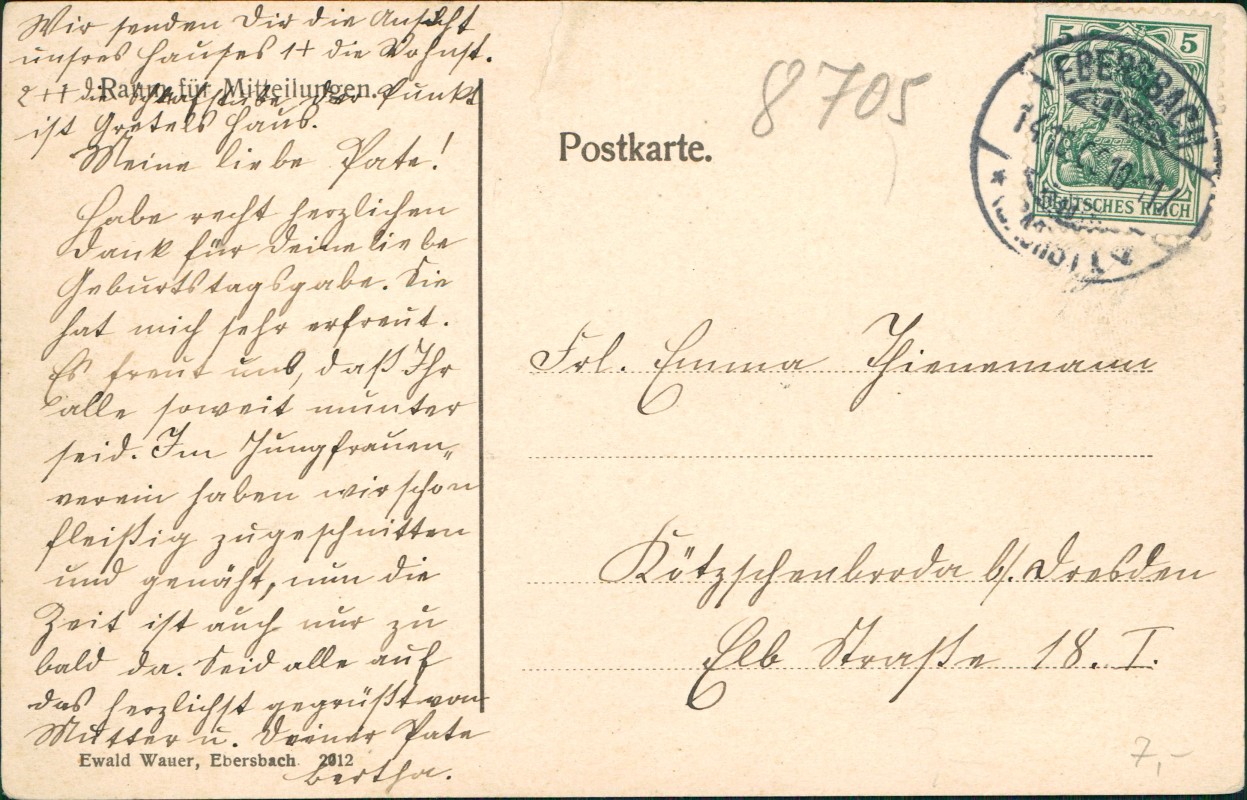 Wir senden Dir die Ansicht
unsres Hauses 1+ die Wohnst.
2++ die Schlafstube der Punkt
ist Gretels Haus.
Raum für Mitteilungen.
Meine liebe Pate!
Habe recht herzlichen
Dank für Deine liebe
Geburtstagsgabe. Sie
hat mich sehr erfreut.
Es freut uns, daß Ihr
alle soweit munter
seid. Im Jungfrauen„
verein haben wir schon
fleißig zugeschnitten
und genäht, nun die
Zeit ist auch nur zu
bald da. Seid alle auf
das herzlichst gegrüßt von
Mutter u. Deiner Pate
Bertha.
Ewald Wauer, Ebersbach 2012
8705
Postkarte.
5 5
DEUTSCHES REICH
EBERSBACH
(SACHSEN)
Frl. Emma Thienemann
Kötzschenbroda b/. Dresden
Elb Straße 18. I.
7,-